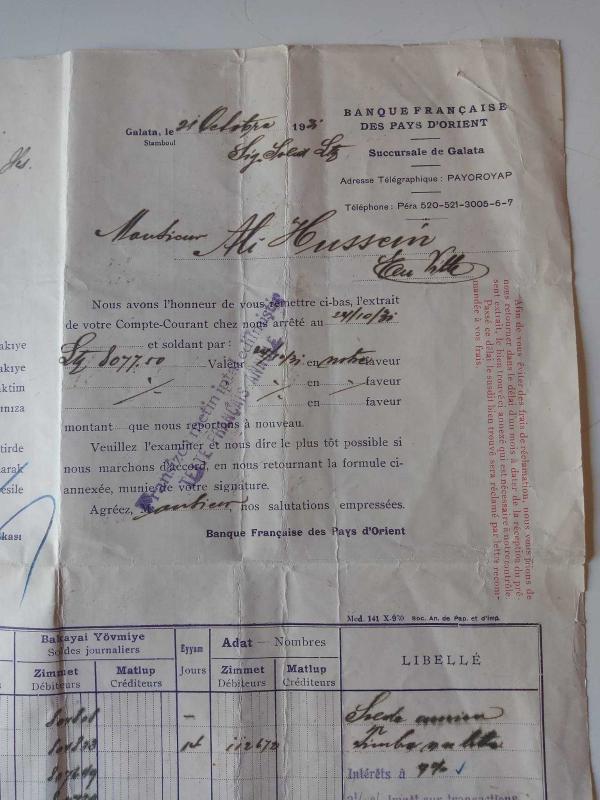 BANQUE FRANÇAISE
DES PAYS D'ORIENT
Succursale de Galata
Adresse Télégraphique : PAYOROYAP
Téléphone : Péra 520-521-3005-6-7
Galata, le 21 Octobre 1931
Stamboul
Monsieur Ali Hussein
En Ville
Nous avons l'honneur de vous remettre ci-bas, l'extrait
de votre Compte-Courant chez nous arrêté au 24/10/31
et soldant par :
Ltq 8077.50 Valeur 24/10/31 en notre faveur
en faveur
en faveur
montant que nous reportons à nouveau.
Veuillez l'examiner et nous dire le plus tôt possible si
nous marchons d'accord, en nous retournant la formule ci-
annexée, munie de votre signature.
Agréez, Monsieur nos salutations empressées.
Banque Française des Pays d'Orient
Fransızca metin iptal edilmiştir
TEXTE FRANÇAIS ANNULÉ
Afin de vous éviter des frais de réclamation, nous vous prions de
nous retourner dans le délai d'un mois à dater de la réception du pré-
sent extrait, le bien trouvé ci annexé qui est nécessaire à notre contrôle.
Passé ce délai le susdit bien trouvé sera réclamé par lettre recom-
mandée à vos frais.
akıye
aktim
ınıza
tirde
arak
esile
kası
Mod. 141 X-930 Soc. An. de Pap. et d'Imp.
Bakayai Yövmiye
Soldes journaliers
Eyyam
Jours
Adat — Nombres
LIBELLÉ
Zimmet
Débiteurs
Matlup
Créditeurs
Zimmet
Débiteurs
Matlup
Créditeurs
Solde ancien
Timbre
Intérêts à 9%